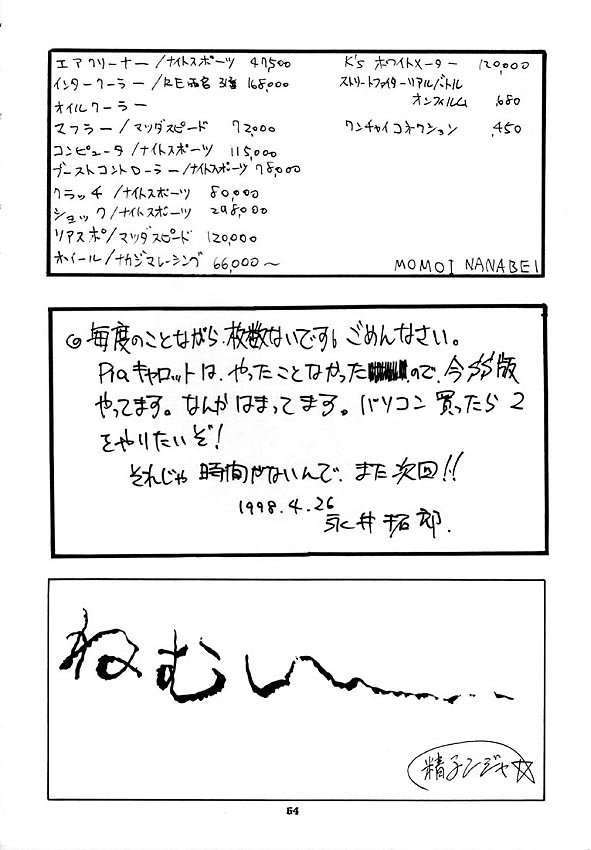 エアクリーナー/ナイトスポーツ 47,500
インタークーラー/RE雨宮 3層 168,000
オイルクーラー
マフラー/マツダスピード 72,000
コンピュータ/ナイトスポーツ 115,000
ブーストコントローラー/ナイトスポーツ 78,000
クラッチ/ナイトスポーツ 80,000
ショック/ナイトスポーツ 298,000
リアスポ/マツダスピード 120,000
ホイール/ナカジマレーシング 66,000～
K's ホワイトメーター 120,000
ストリートファイターリアルバトル
オンフィルム 680
ワンチャイコネクション 450
MOMOI NANABEI
◎毎度のことながら、枚数ないです。ごめんなさい。
Piaキャロットは、やったことなかった ので、今SS版
やってます。なんかはまってます。パソコン買ったら2
をやりたいぞ!
それじゃ時間がないんで、また次回!!
1998.4.26
永井拓郎.
ねむいー……
精子ンジャ☆
64